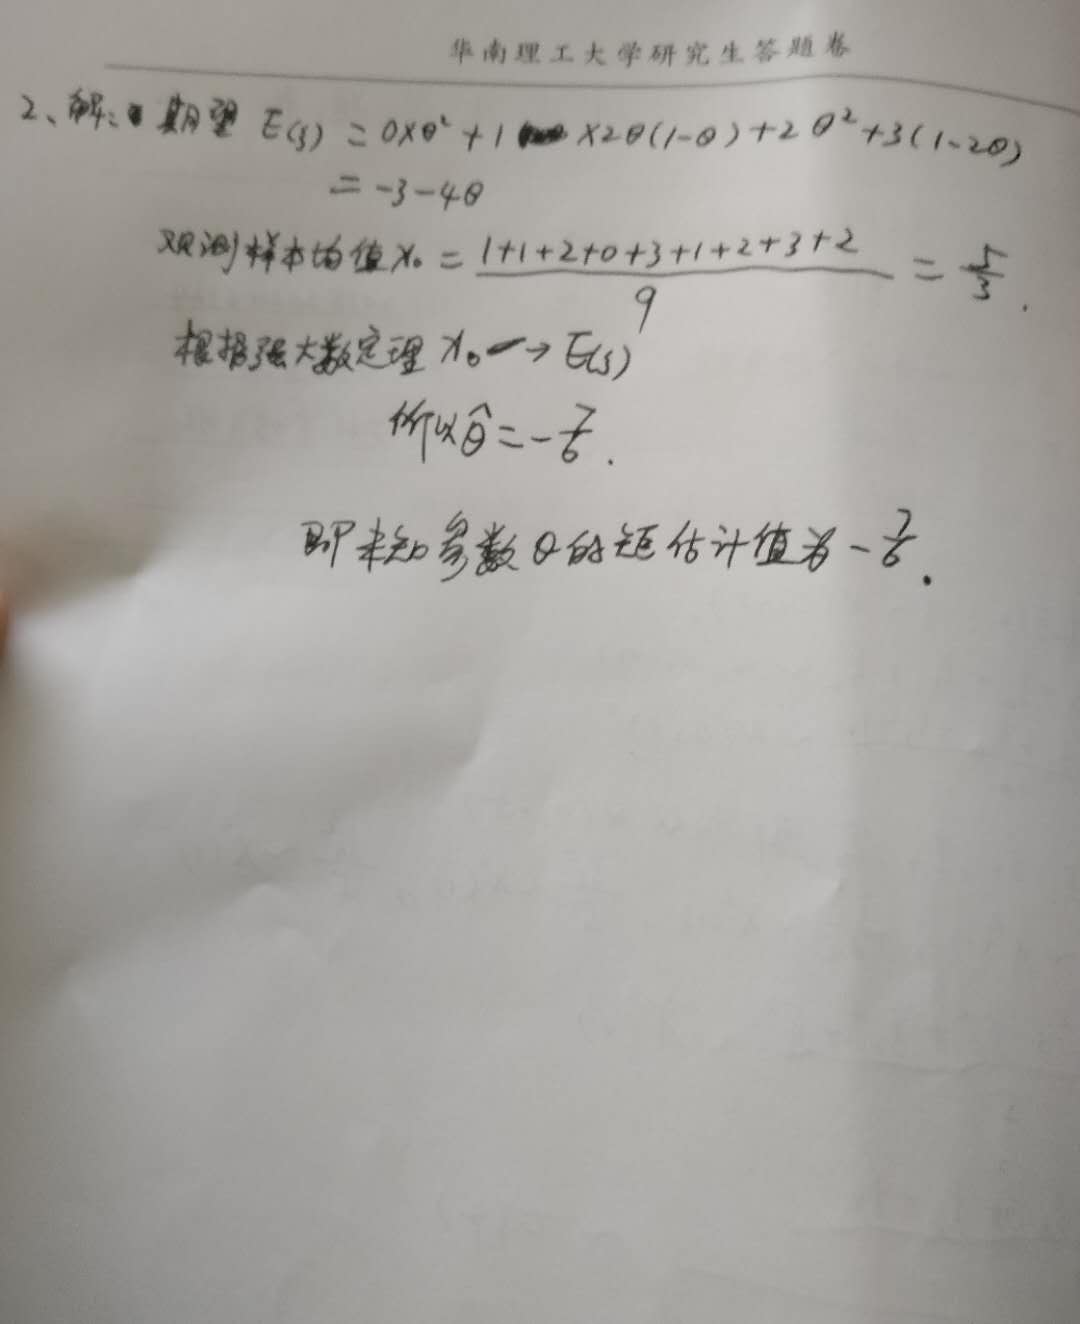 华南理工大学研究生答题卷
2、解: 期望 E(ξ) = 0×θ² + 1 ×2θ(1-θ)+2θ²+3(1-2θ)
= -3-4θ
观测样本均值 x₀ = (1+1+2+0+3+1+2+3+2)/9 = 5/3.
根据强大数定理 x₀ → E(ξ)
所以 θ̂ = -7/6.
即未知参数θ的矩估计值为 -7/6.